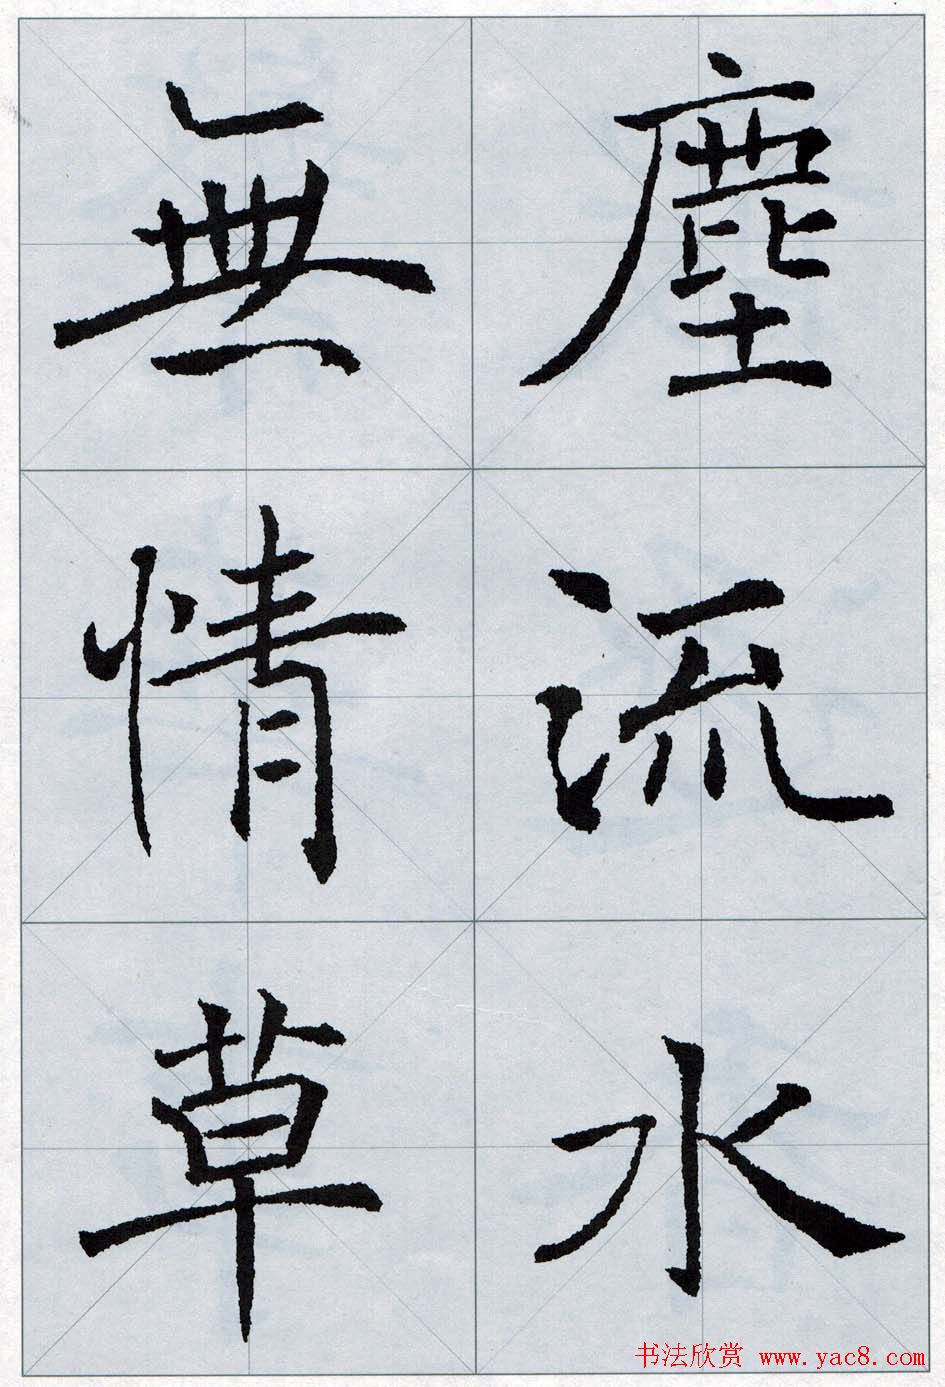 塵流水
無情草
书法欣赏 www.yac8.com